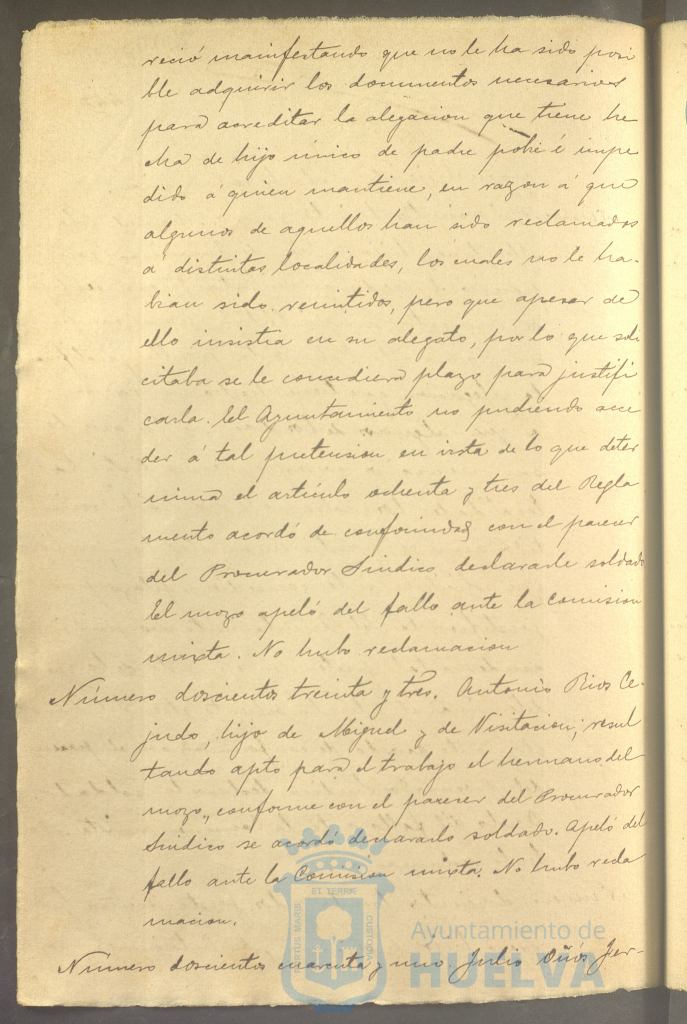 reció manifestando que no le ha sido posi
ble adquirir los documentos necesarios
para acreditar la alegacion que tiene he
cha de hijo único de padre pobre é impe
dido á quien mantiene, en razon á que
algunos de aquellos han sido reclamados
á distintas localidades, los cuales no le ha-
bian sido remitidos, pero que apesar de
ello insistia en su alegato, por lo que soli
citaba se le concediera plazo para justifi
carla. El Ayuntamiento no pudiendo acce
der á tal pretension en vista de lo que deter
mina el artículo ochenta y tres del Regla
mento acordó de conformidad con el parecer
del Procurador Sindico declararle soldado
El mozo apeló del fallo ante la Comision
mixta. No hubo reclamacion
Número doscientos treinta y tres. Antonio Rios Ce-
judo, hijo de Miguel y de Visitacion; resul
tando apto para el trabajo el hermano del
mozo, conforme con el parecer del Procurador
Sindico se acordó declararlo soldado. Apeló del
fallo ante la Comision mixta. No hubo recla
macion.
Número doscientos cuarenta y uno Julio
Ayuntamiento de
HUELVA
PORTUS MARIS ET TERRÆ CUSTODIA